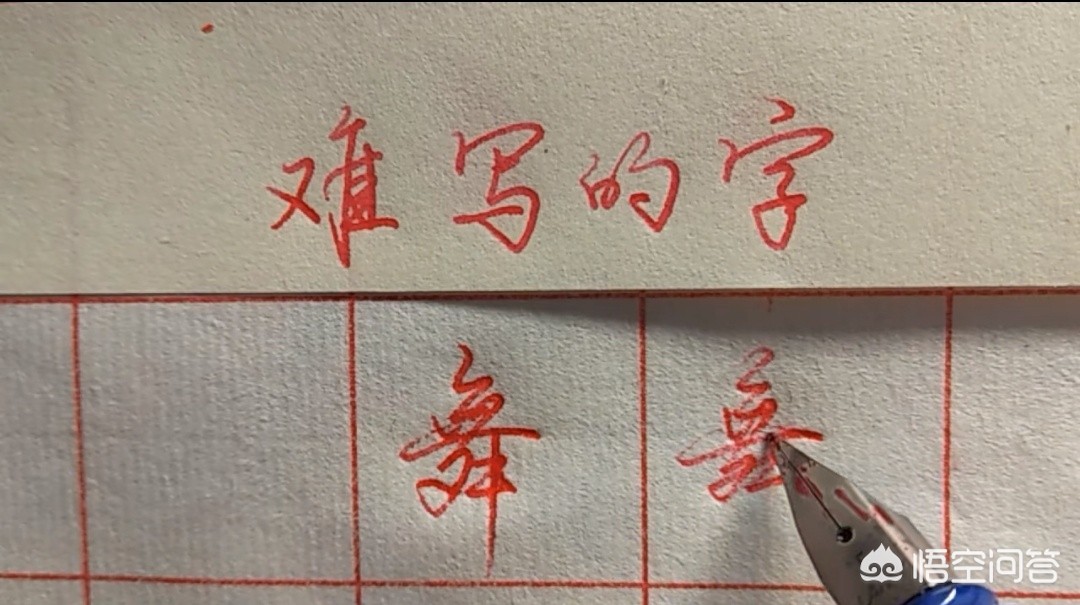 难写的字
舞 舞
悟空问答